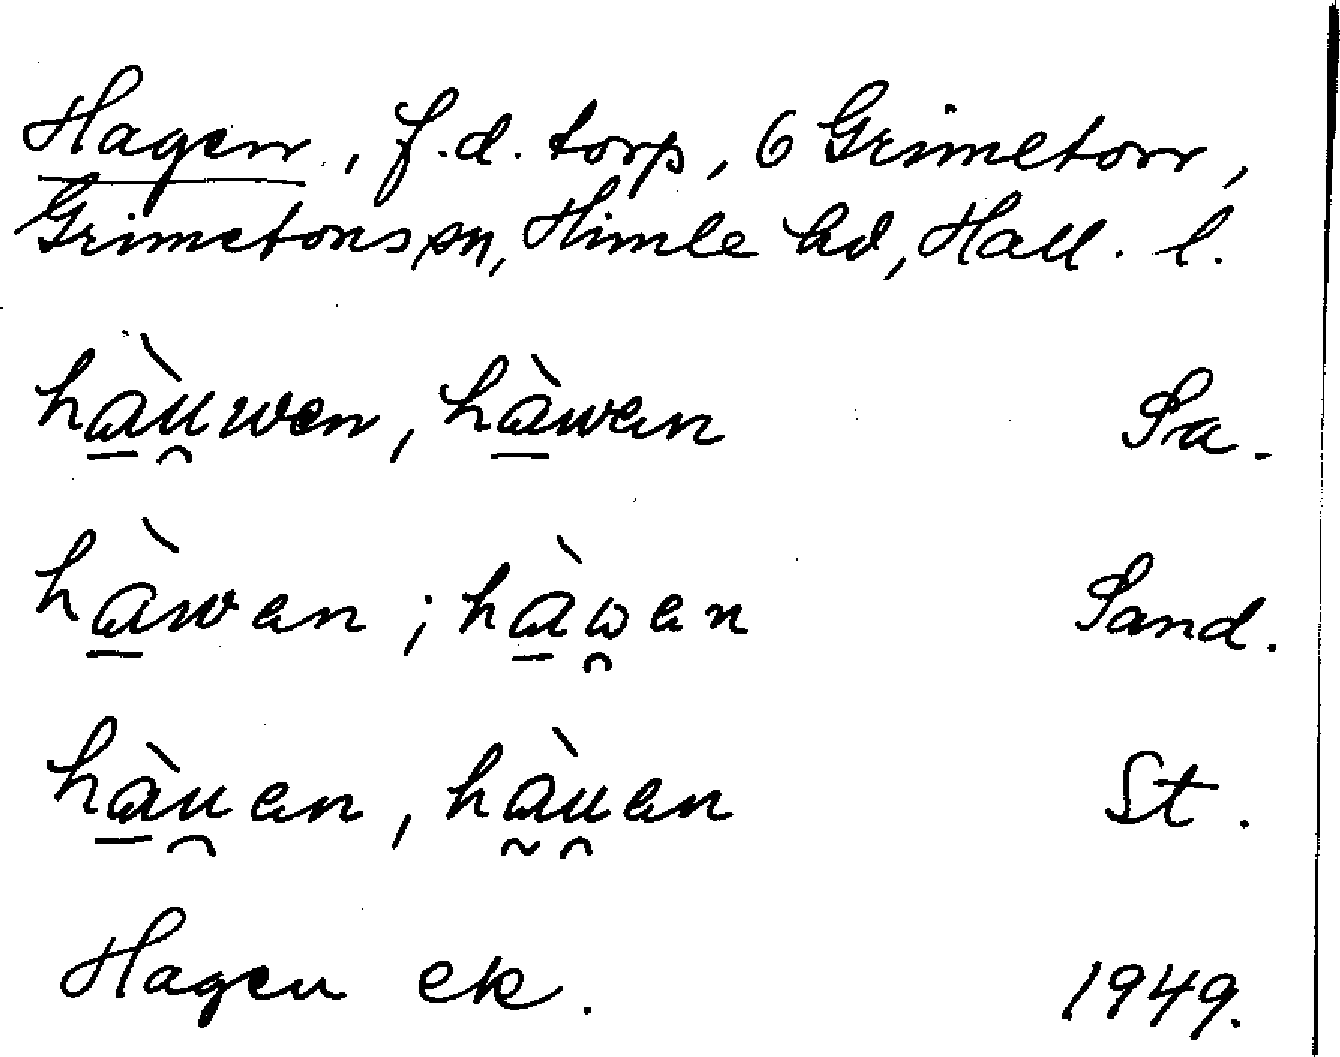 Hagen, f.d. torp, 6 Grimeton,
Grimetons sn, Himle hd, Hall. l.
hɑ̠̀u̯wen, hɑ̠̀wen Sa.
hɑ̠̀wen; hɑ̠̀ω̯en Sand.
hɑ̠̀u̯en, hɑ̰̀u̯en St.
Hagen ek. 1949.